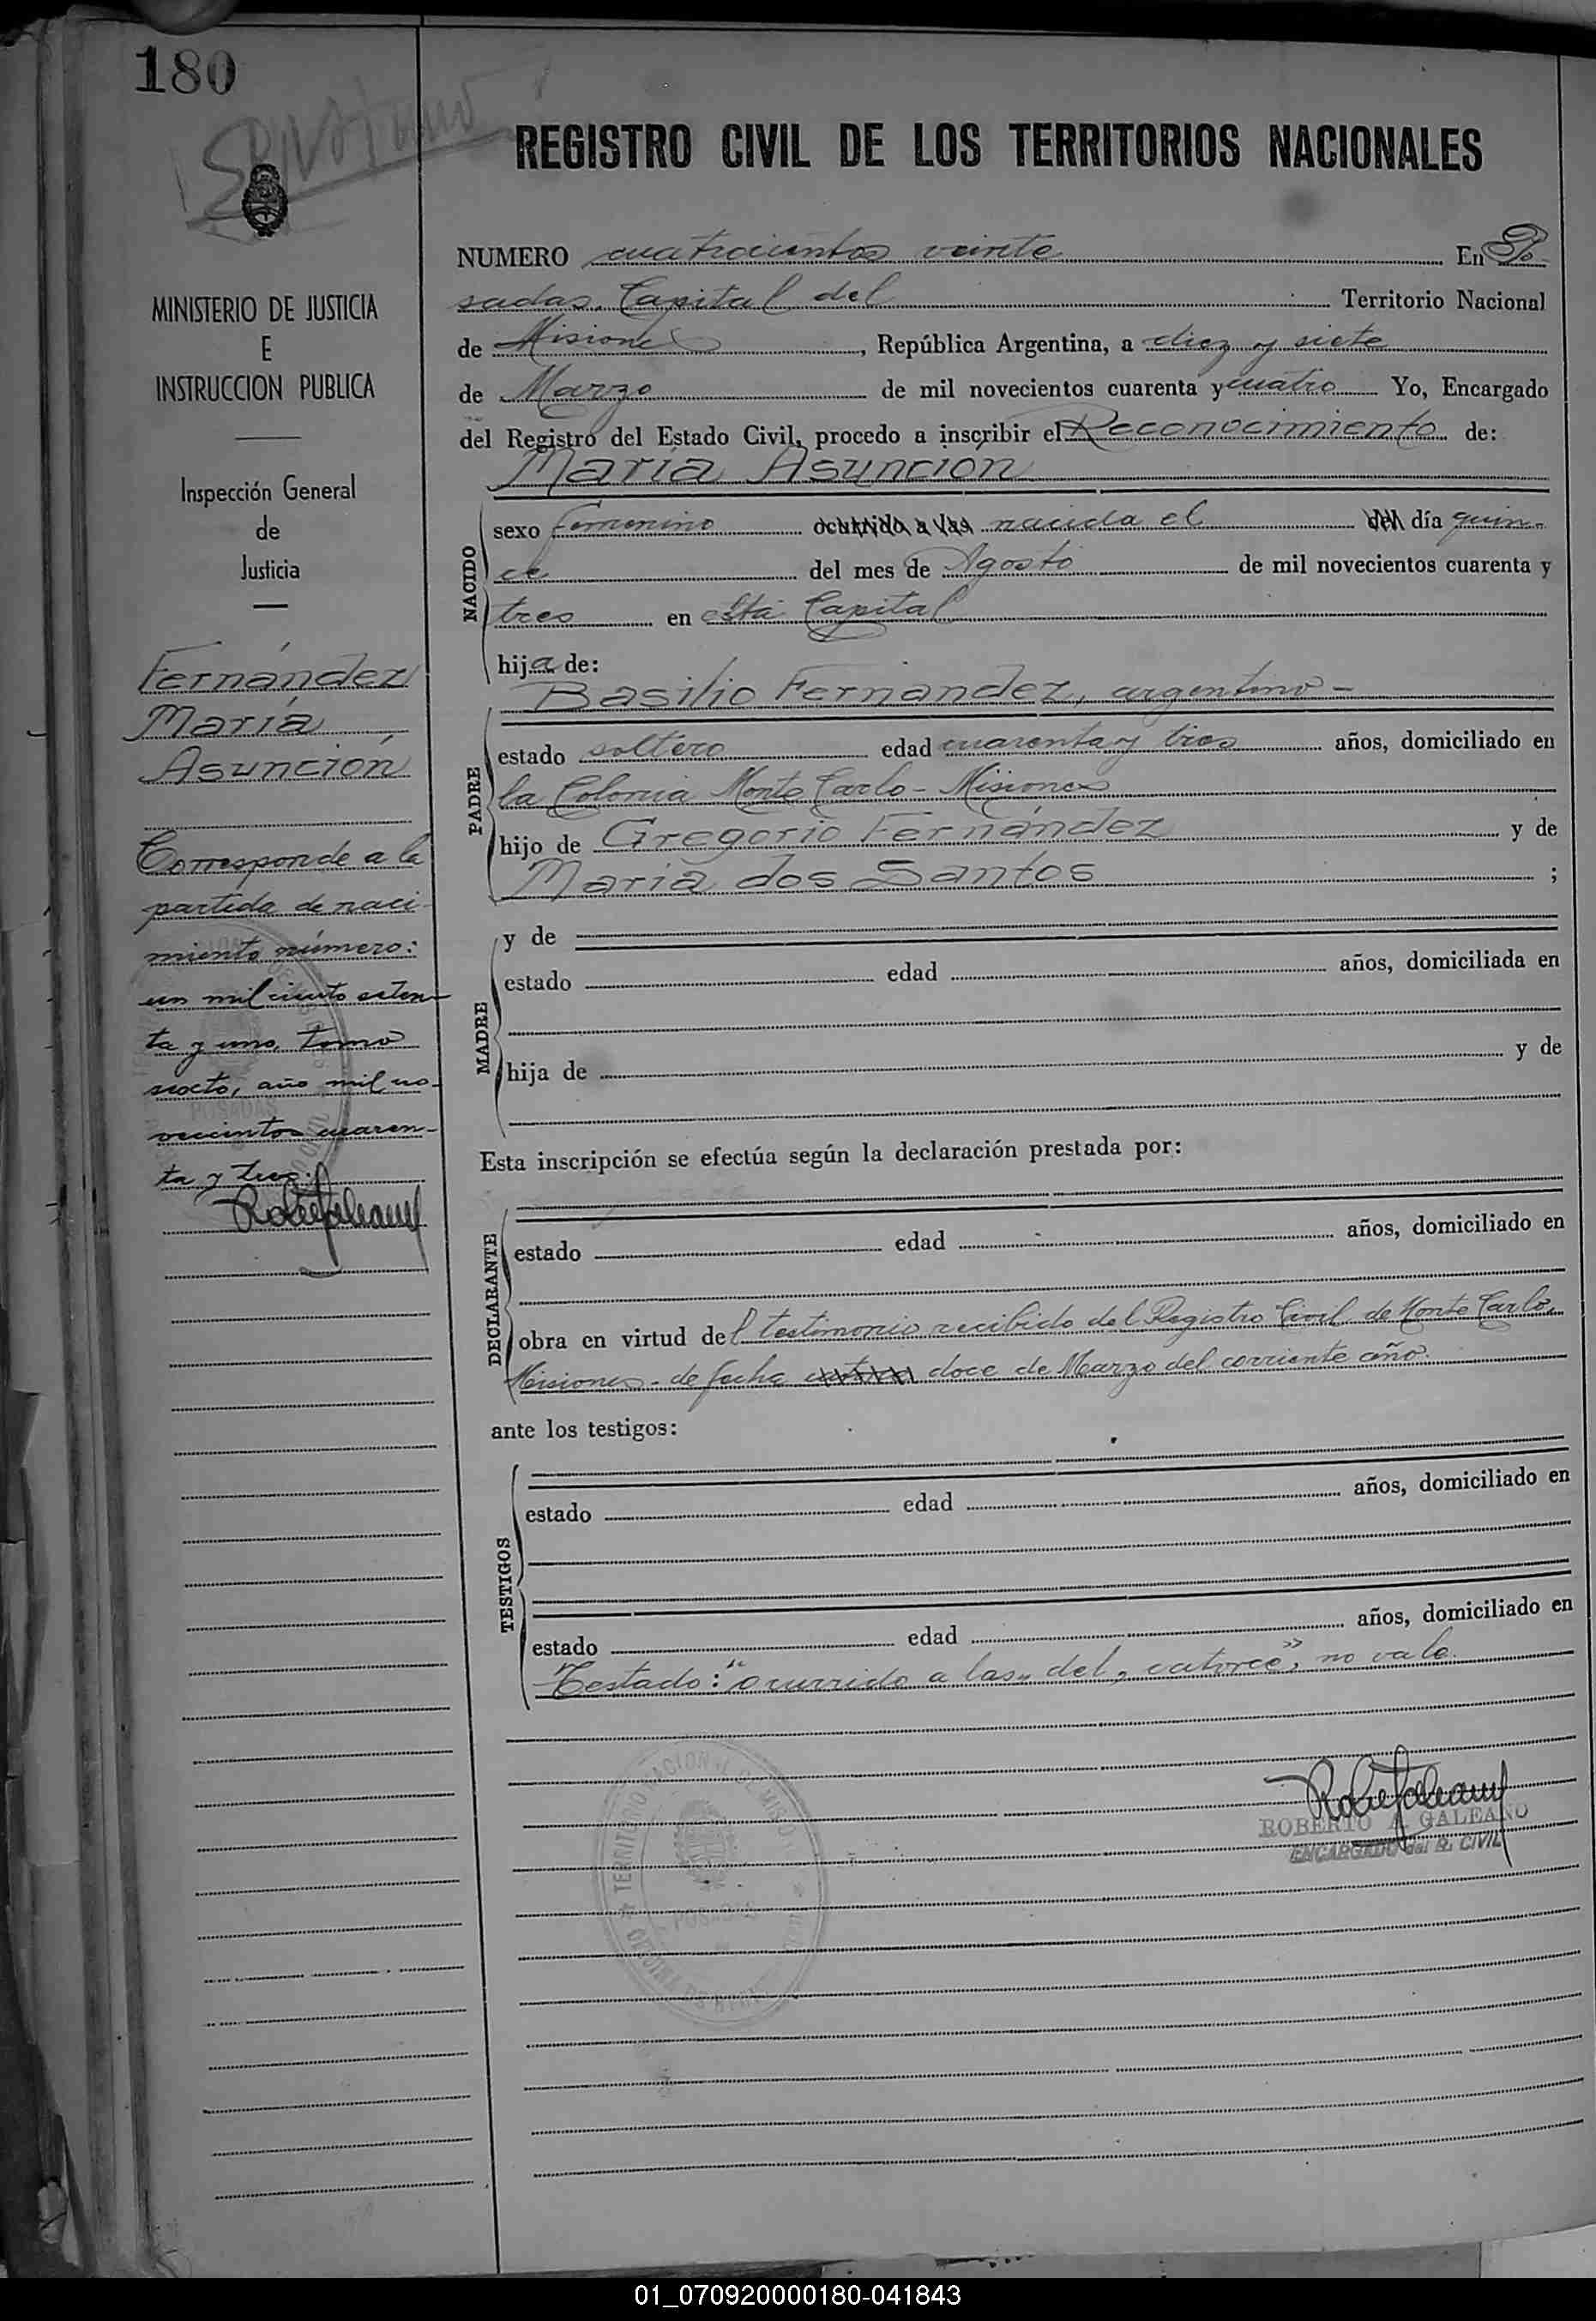 180
REGISTRO CIVIL DE LOS TERRITORIOS NACIONALES
MINISTERIO DE JUSTICIA
E
INSTRUCCION PUBLICA
Inspección General
de
Justicia
Fernández
María
Asunción
Corresponde a la
partida de naci-
miento número:
un mil ciento seten-
ta y uno, tomo
sexto, año mil no-
vecientos cuaren-
ta y tres.
NUMERO cuatrocientos veinte En Po-
sadas, Capital del Territorio Nacional
de Misiones, República Argentina, a diez y siete
de Marzo de mil novecientos cuarenta y cuatro Yo, Encargado
del Registro del Estado Civil, procedo a inscribir el Reconocimiento de:
María Asunción
NACIDO
sexo femenino ocurrido a las nacida el del día quin-
ce del mes de Agosto de mil novecientos cuarenta y
tres en esta Capital
hija de:
Basilio Fernández, argentino -
PADRE
estado soltero edad cuarenta y tres años, domiciliado en
la Colonia Monte Carlo - Misiones
hijo de Gregorio Fernández y de
María dos Santos ;
MADRE
y de
estado edad años, domiciliada en
hija de y de
Esta inscripción se efectúa según la declaración prestada por:
DECLARANTE
estado edad años, domiciliado en
obra en virtud del testimonio recibido del Registro Civil de Monte Carlo,
Misiones - de fecha doce de Marzo del corriente año.
ante los testigos:
TESTIGOS
estado edad años, domiciliado en
estado edad años, domiciliado en
Testado: "ocurrido a las, del, catorce", no vale.
TERRITORIO NACIONAL DE MISIONES
POSADAS
ROBERTO GALEANO
ENCARGADO del R. CIVIL
01_070920000180-041843